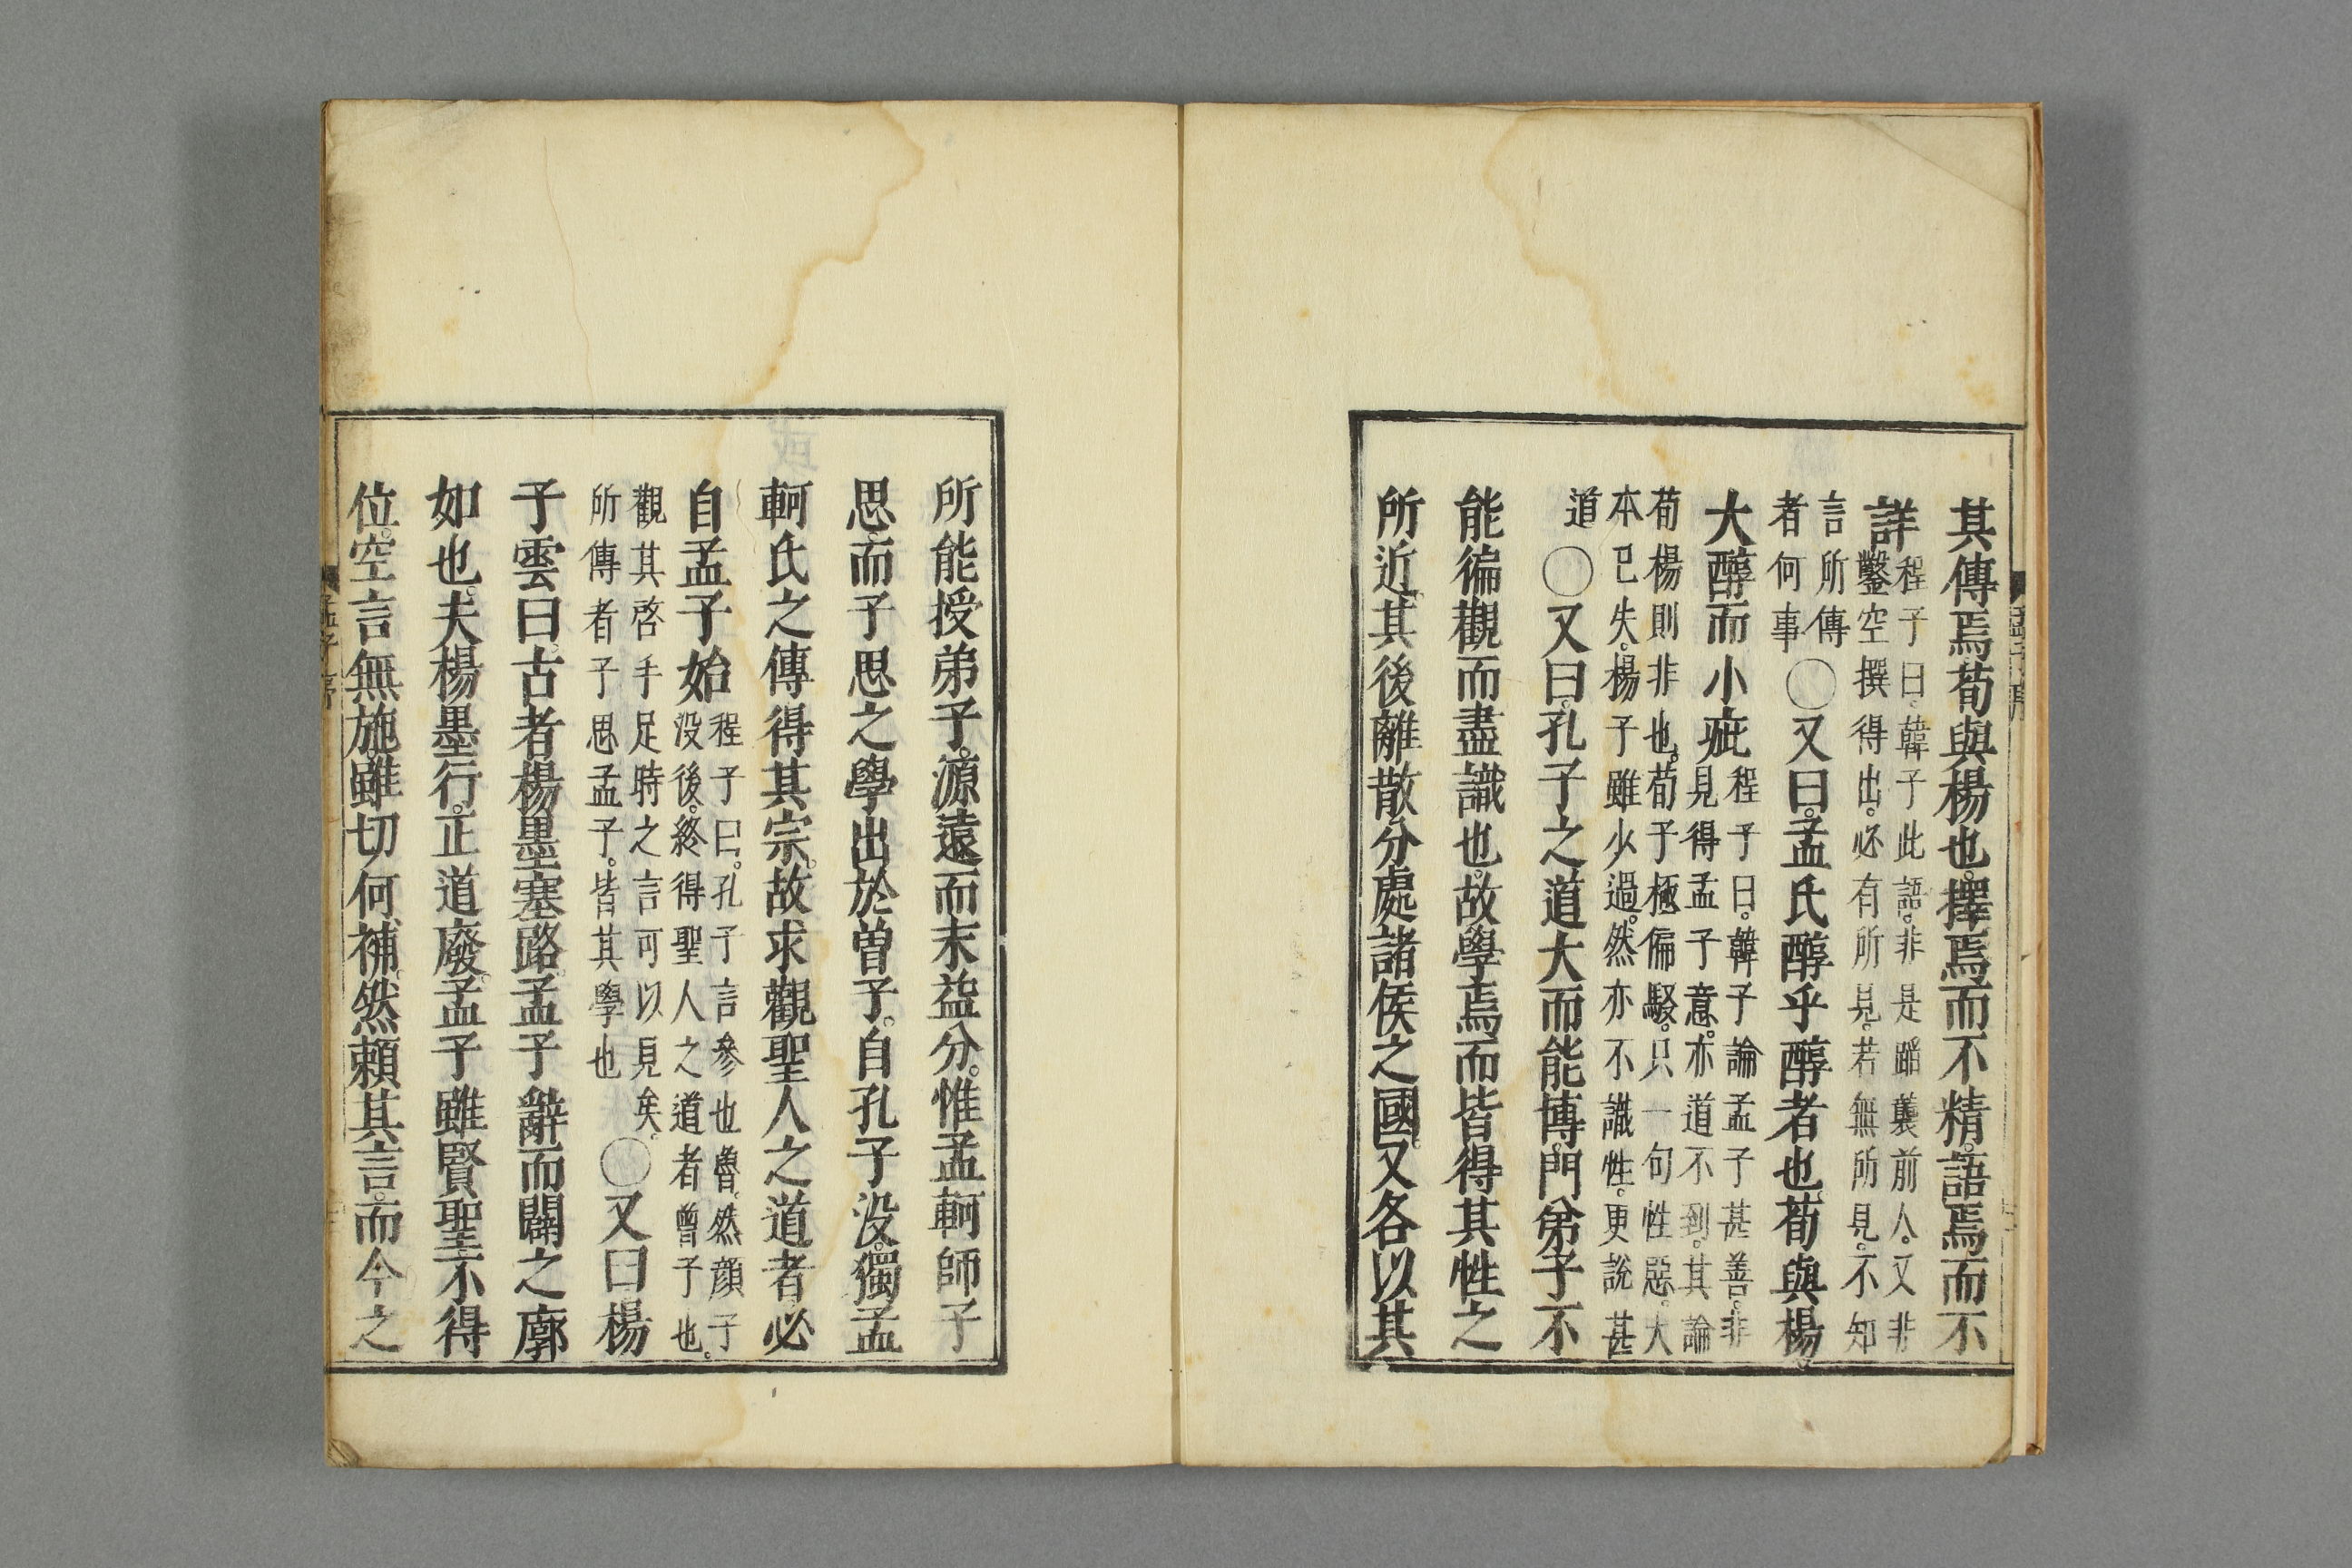 其傳焉荀與楊也。擇焉而不精。語焉而不
詳程子曰。韓子此語。非是蹈襲前人。又非
鑿空撰得出。必有所見。若無所見。不知
言所傳
者何事〇又曰。孟氏醇乎醇者也。荀與楊
大醇而小疵程子曰。韓子論孟子甚善。非
見得孟子意。亦道不到。其論
荀楊則非也。荀子極偏駁。只一句性惡。大
本已失。楊子雖少過。然亦不識性。更說甚
道〇又曰。孔子之道大而能博。門弟子不
能徧觀而盡識也。故學焉而皆得其性之
所近。其後離散分處諸侯之國。又各以其
所能授弟子。源遠而末益分。惟孟軻師子
思。而子思之學出於曾子。自孔子没。獨孟
軻氏之傳得其宗。故求觀聖人之道者。必
自孟子始程子曰。孔子言參也魯。然顔子
没後。終得聖人之道者曾子也。
觀其啓手足時之言可以見矣。
所傳者子思孟子。皆其學也〇又曰。楊
子雲曰。古者楊墨塞路。孟子辭而闢之廓
如也。夫楊墨行。正道廢。孟子雖賢聖不得
位。空言無施。雖切何補。然賴其言。而今之
孟子序